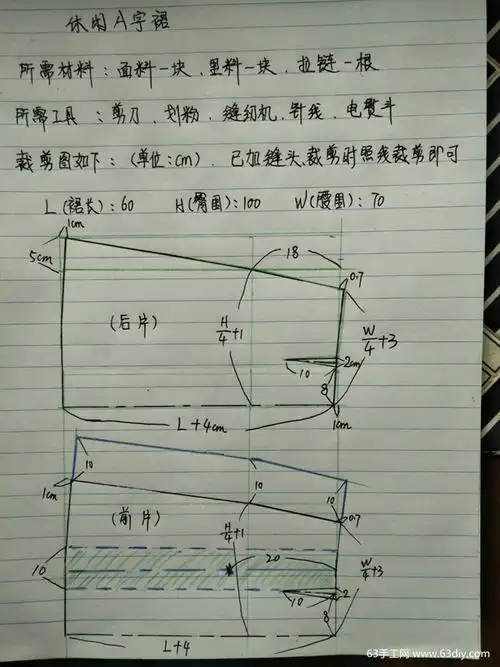 休闲A字裙
所需材料：面料一块，里料一块，拉链一根
所需工具：剪刀，划粉，缝纫机，针线，电熨斗
裁剪图如下：（单位：cm），已加缝头，裁剪时照线裁剪即可
L(裙长)：60 H(臀围)：100 W(腰围)：70
1cm
5cm
18
0.7
(后片)
H/4+1
W/4+3
2cm
10
8
L+4cm
1cm
10
10
10
1cm
0.7
(前片)
H/4+1
10
20
W/4+3
10
2
8
L+4
63手工网 www.63diy.com